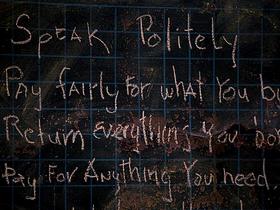 Speak Politely
Pay fairly for what You bu
Return everything you bo
Pay For Anything You need.